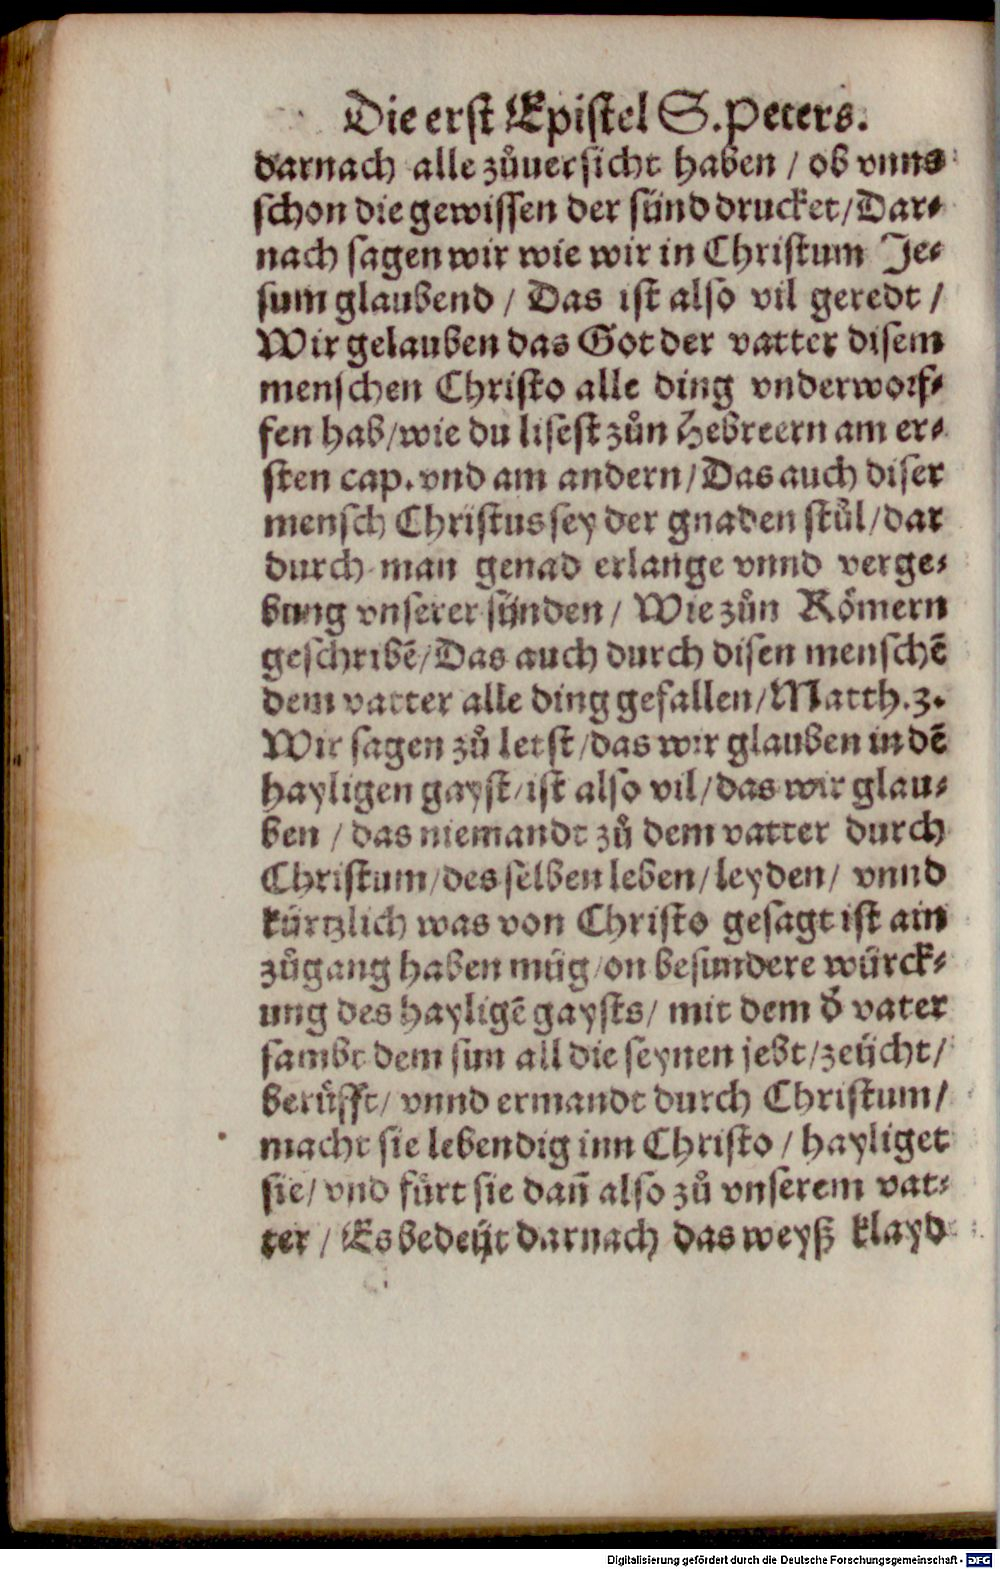 Die erst Epistel S. Peters.
darnach alle zůuersicht haben / ob vnns
schon die gewissen der sünd drucket / Dar-
nach sagen wir wie wir in Christum Je-
sum glaubend / Das ist also vil geredt /
Wir gelauben das Got der vatter disem
menschen Christo alle ding vnderworf-
fen hab / wie du lisest zůn Hebreern am er-
sten cap. vnd am andern / Das auch diser
mensch Christus sey der gnaden stůl / dar
durch man genad erlange vnnd verge-
bung vnserer sünden / Wie zůn Römern
geschribẽ / Das auch durch disen menschẽ
dem vatter alle ding gefallen / Matth. 3.
Wir sagen zů letst / das wir glauben in dẽ
hayligen gayst / ist also vil / das wir glau-
ben / das niemandt zů dem vatter durch
Christum / des selben leben / leyden / vnnd
kürtzlich was von Christo gesagt ist ain
zůgang haben müg / on besundere würck-
ung des hayligẽ gaysts / mit dem d̛ vater
sambt dem sun all die seynen jebt / zeücht /
berüfft / vnnd ermandt durch Christum /
macht sie lebendig inn Christo / hayliget
sie / vnd fürt sie dañ also zů vnserem vat-
ter / Es bedeüt darnach das weyß klayd
Digitalisierung gefördert durch die Deutsche Forschungsgemeinschaft - DFG